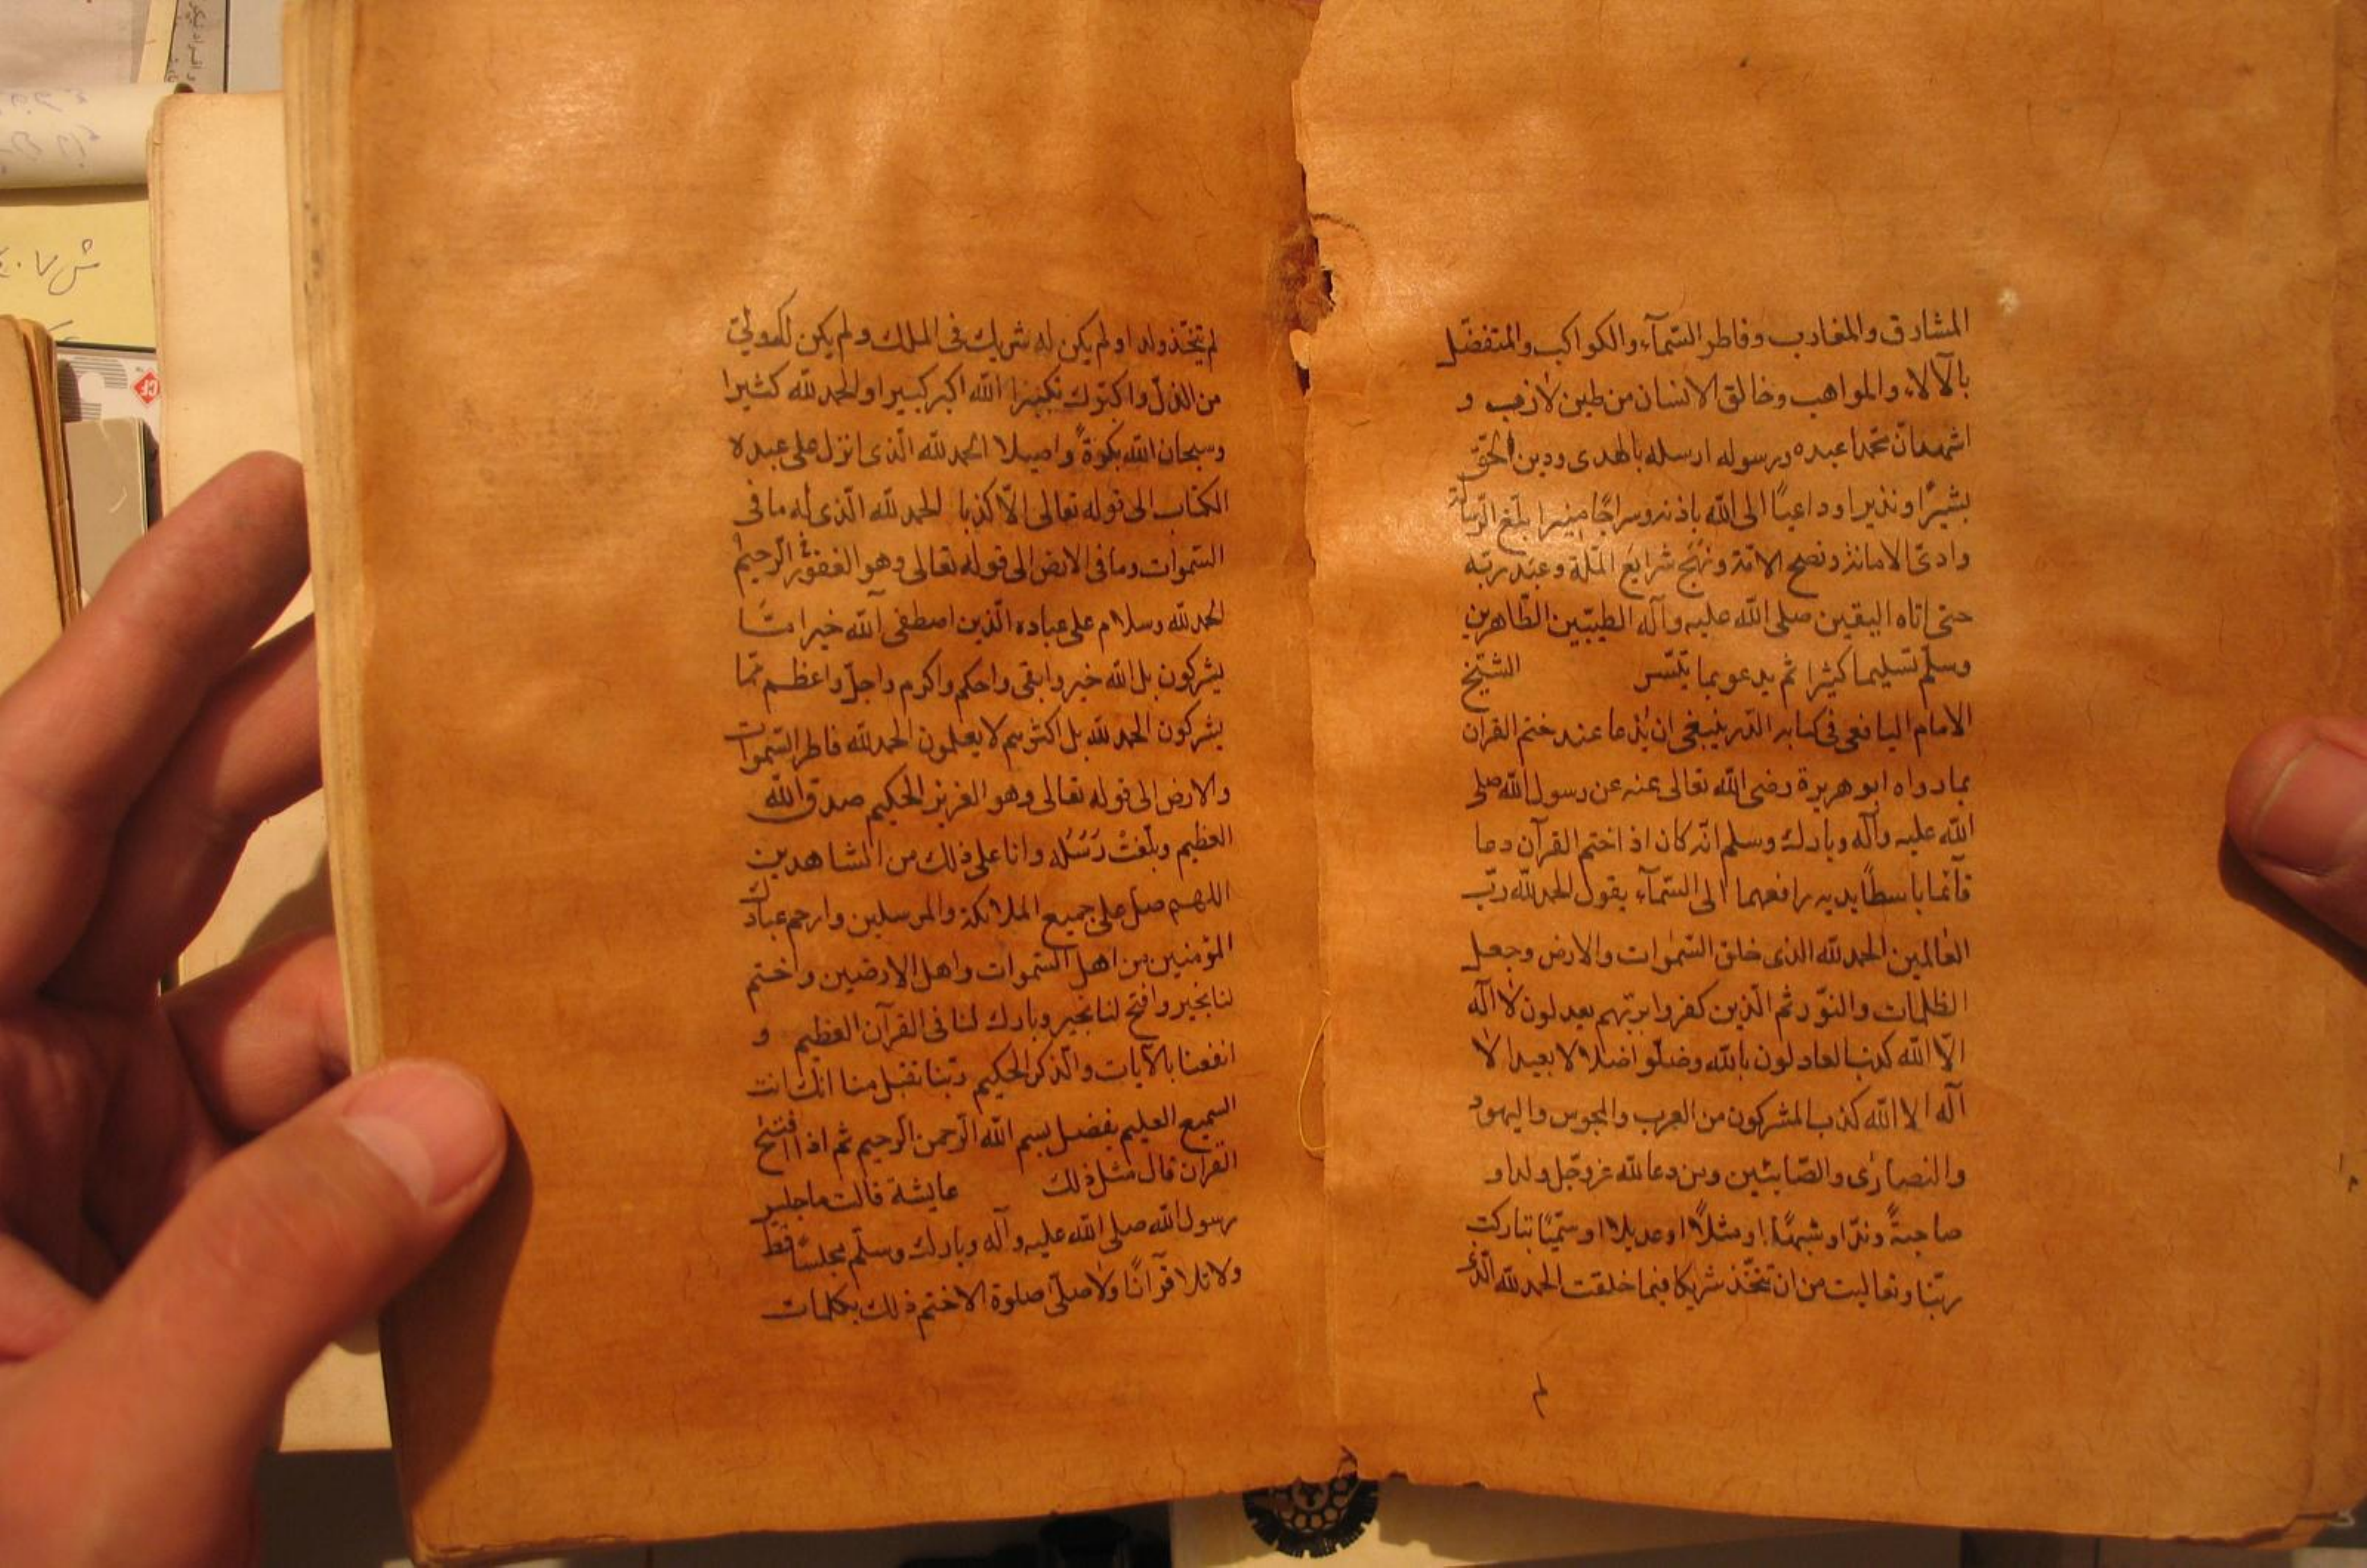 المشارق والمغارب وفاطر السّمآء والكواكب والمتفضّل
بالآلاء والمواهب وخالق الانسان من طين لازب و
اشهد انّ محمّدا عبده ورسوله ارسله بالهدى ودين الحقّ
بشيرًا ونذيرا وداعيًا الى الله باذنه وسراجًا منيرا بلّغ الرّسالة
وادىّ الامانة ونصح الامّة ونهج شرايع الملّة وعبد ربّه
حتى اتاه اليقين صلى الله عليه وآله الطيّبين الطّاهرين
وسلّم تسليما كثيرا ثم يدعو بما يتيّسر الشيّخ
الامام اليافعى فى كتابه الدّر ينبغى ان يُدعا عند ختم القرآن
بما رواه ابو هريرة رضى الله تعالى عنه عن رسول الله صلى
الله عليه وآله وبارك وسلم انّه كان اذ اختم القرآن دعا
قآئما باسطًا يديه رافعهما الى السّمآء يقول الحمد لله ربّ
العالمين الحمد لله الذى خلق السّموات والارض وجعل
الظلمات والنوّر ثم الّذين كفروا بربّهم يعدلون لا اله
الّا الله كذب العادلون بالله وضلّو اضلالا بعيدا لا
اله الا الله كذب المشركون من العرب والمجوس واليهود
والنصارٰى والصّابئين ومن دعا لله عزوجّل ولدا و
صاحبةً وندّا او شبهًا او مثلاً او عديلا او سمّيًا تباركت
ربّنا وتعاليت من ان تتخّذ شريكا فيما خلقت الحمد لله الّذى
لم
لم يتخّذ ولدا ولم يكن له شريك فى الملك ولم يكن له ولىّ
من الذلّ واكبّرك تكبيرا الله اكبر كبيرا والحمد لله كثيرا
وسبحان الله بكرةً واصيلا الحمد لله الّذى انزل على عبده
الكتاب الى قوله تعالى الّا كذبا الحمد لله الّذى له ما فى
السّموات وما فى الارض الى قوله تعالى وهو الغفور الرّحيم
الحمد لله وسلام على عباده الّذين اصطفى آلله خير امّا
يشركون بل الله خير وابقى واحكم واكرم واجلّ واعظم ممّا
يشركون الحمد لله بل اكثرهم لا يعلمون الحمد لله فاطر السّموات
والارض الى قوله تعالى وهو العزيز الحكيم صدق الله
العظيم وبلّغت رَسُله وانا على ذلك من الشاهدين
اللهم صل على جميع الملائكة والمرسلين وارحم عبادك
المؤمنين من اهل السّموات واهل الارضين واختم
لنا بخير وافتح لنا بخير وبارك لنا فى القرآن العظيم و
انفعنا بالآيات والّذكر الحكيم ربّنا تقبل منا انّك انت
السميع العليم بفضل بسم الله الرّحمن الّرحيم ثم اذا افتتح
القرآن قال مثل ذلك عايشة قالت ما جلس
رسول الله صلى الله عليه وآله وبارك وسلّم مجلسًا قط
ولا تلا قرآنًا ولا صلّى صلوة الا ختم ذلك بكلمات